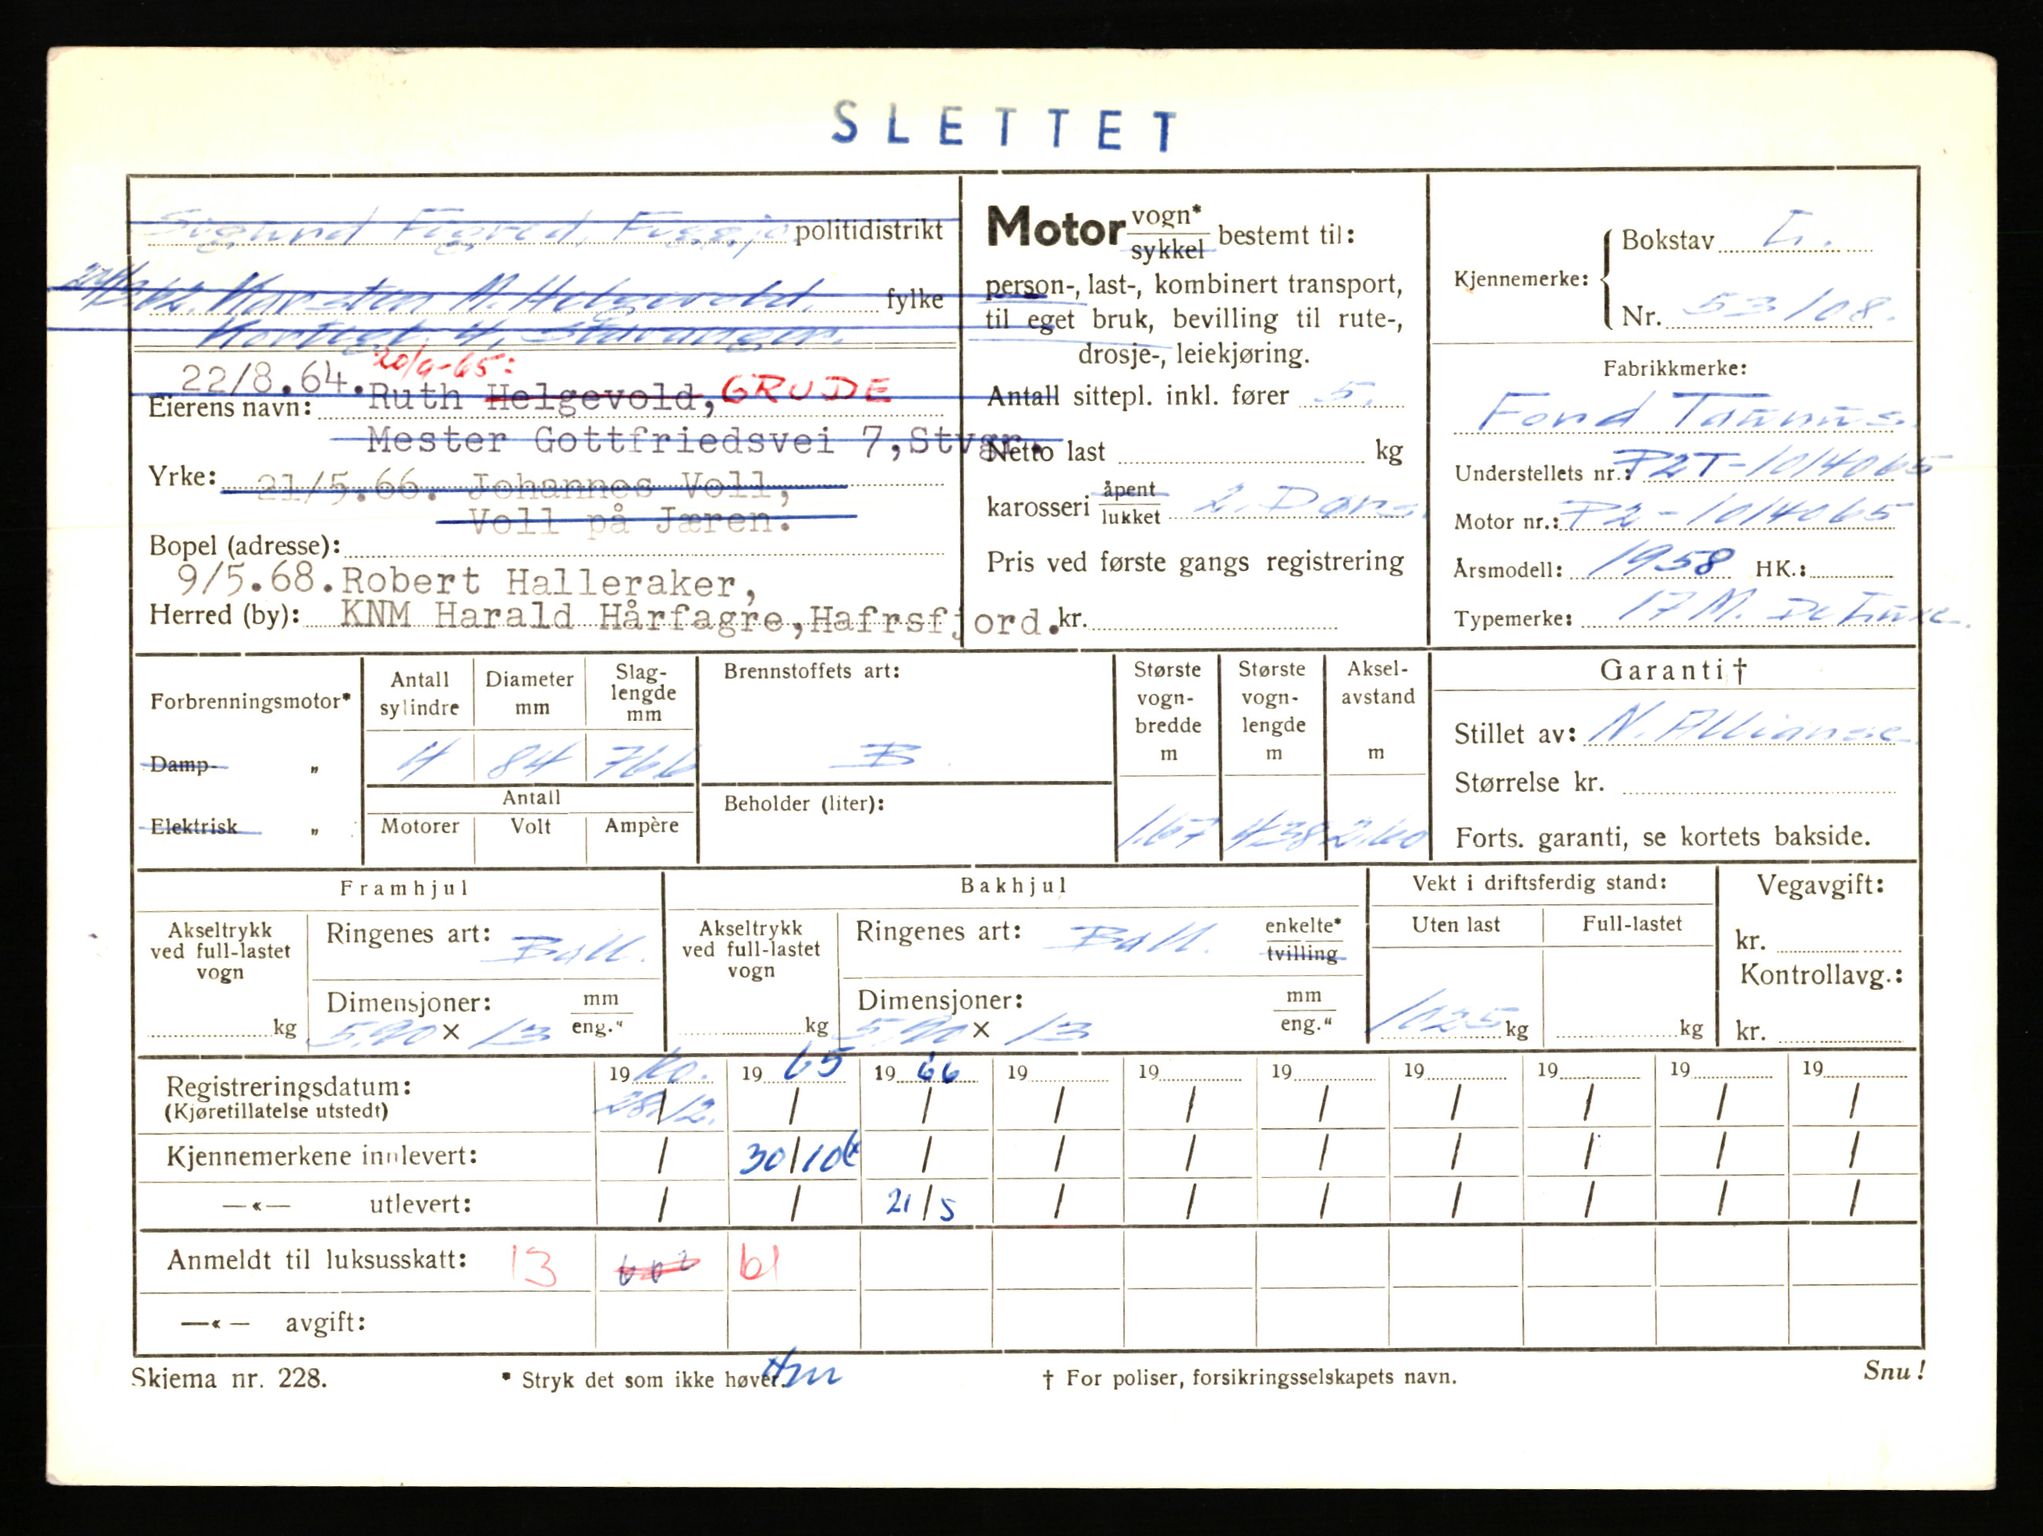 SLETTET
politidistrikt
Karsten M. Helgevold. fylke
4, Stavanger.
22/8.64. 20/9-65:
Eierens navn: Ruth Helgevold, GRUDE
Mester Gottfriedsvei 7, Stvgr.
Yrke: 21/5.66. Johannes Voll,
Voll på Jæren.
Bopel (adresse):
9/5.68. Robert Halleraker,
Herred (by): KNM Harald Hårfagre, Hafrsfjord.
Motor vogn*
sykkel bestemt til:
person-, last-, kombinert transport,
til eget bruk, bevilling til rute-,
drosje-, leiekjøring.
Antall sittepl. inkl. fører 5.
Netto last kg
karosseri åpent
lukket 2. Dørs.
Pris ved første gangs registrering
kr.
Kjennemerke:
Bokstav L.
Nr. 53108.
Fabrikkmerke:
Ford Taunus.
Understellets nr.: P2T-1014065
Motor nr.: P2-1014065
Årsmodell: 1958 HK.:
Typemerke: 17 M. De Luxe.
Forbrenningsmotor*
Damp- „
Elektrisk „
Antall sylindre
4
Diameter mm
84
Slag-lengde mm
76.6
Antall
Motorer Volt Ampère
Brennstoffets art:
B
Beholder (liter):
Største vogn-bredde m
1.67
Største vogn-lengde m
4.38
Aksel-avstand m
2.60
Garanti †
Stillet av: N. Alliance
Størrelse kr.
Forts. garanti, se kortets bakside.
Framhjul
Akseltrykk ved full-lastet vogn
kg
Ringenes art: Ball.
Dimensjoner: mm
5.90 x 13 eng."
Bakhjul
Akseltrykk ved full-lastet vogn
kg
Ringenes art: Ball. enkelte*
tvilling
Dimensjoner: mm
5.90 x 13 eng."
Vekt i driftsferdig stand:
Uten last Full-lastet
1025 kg kg
Vegavgift:
kr.
Kontrollavg.:
kr.
1960. 1965 1966 19 19 19 19 19 19 19
Registreringsdatum: 28/12. / / / / / / / / /
(Kjøretillatelse utstedt)
Kjennemerkene innlevert: / 30/10 / / / / / / / /
—«— utlevert: / / 21/5 / / / / / / /
Anmeldt til luksusskatt: 13 61
—«— avgift:
Skjema nr. 228. * Stryk det som ikke høver. † For poliser, forsikringsselskapets navn. Snu!